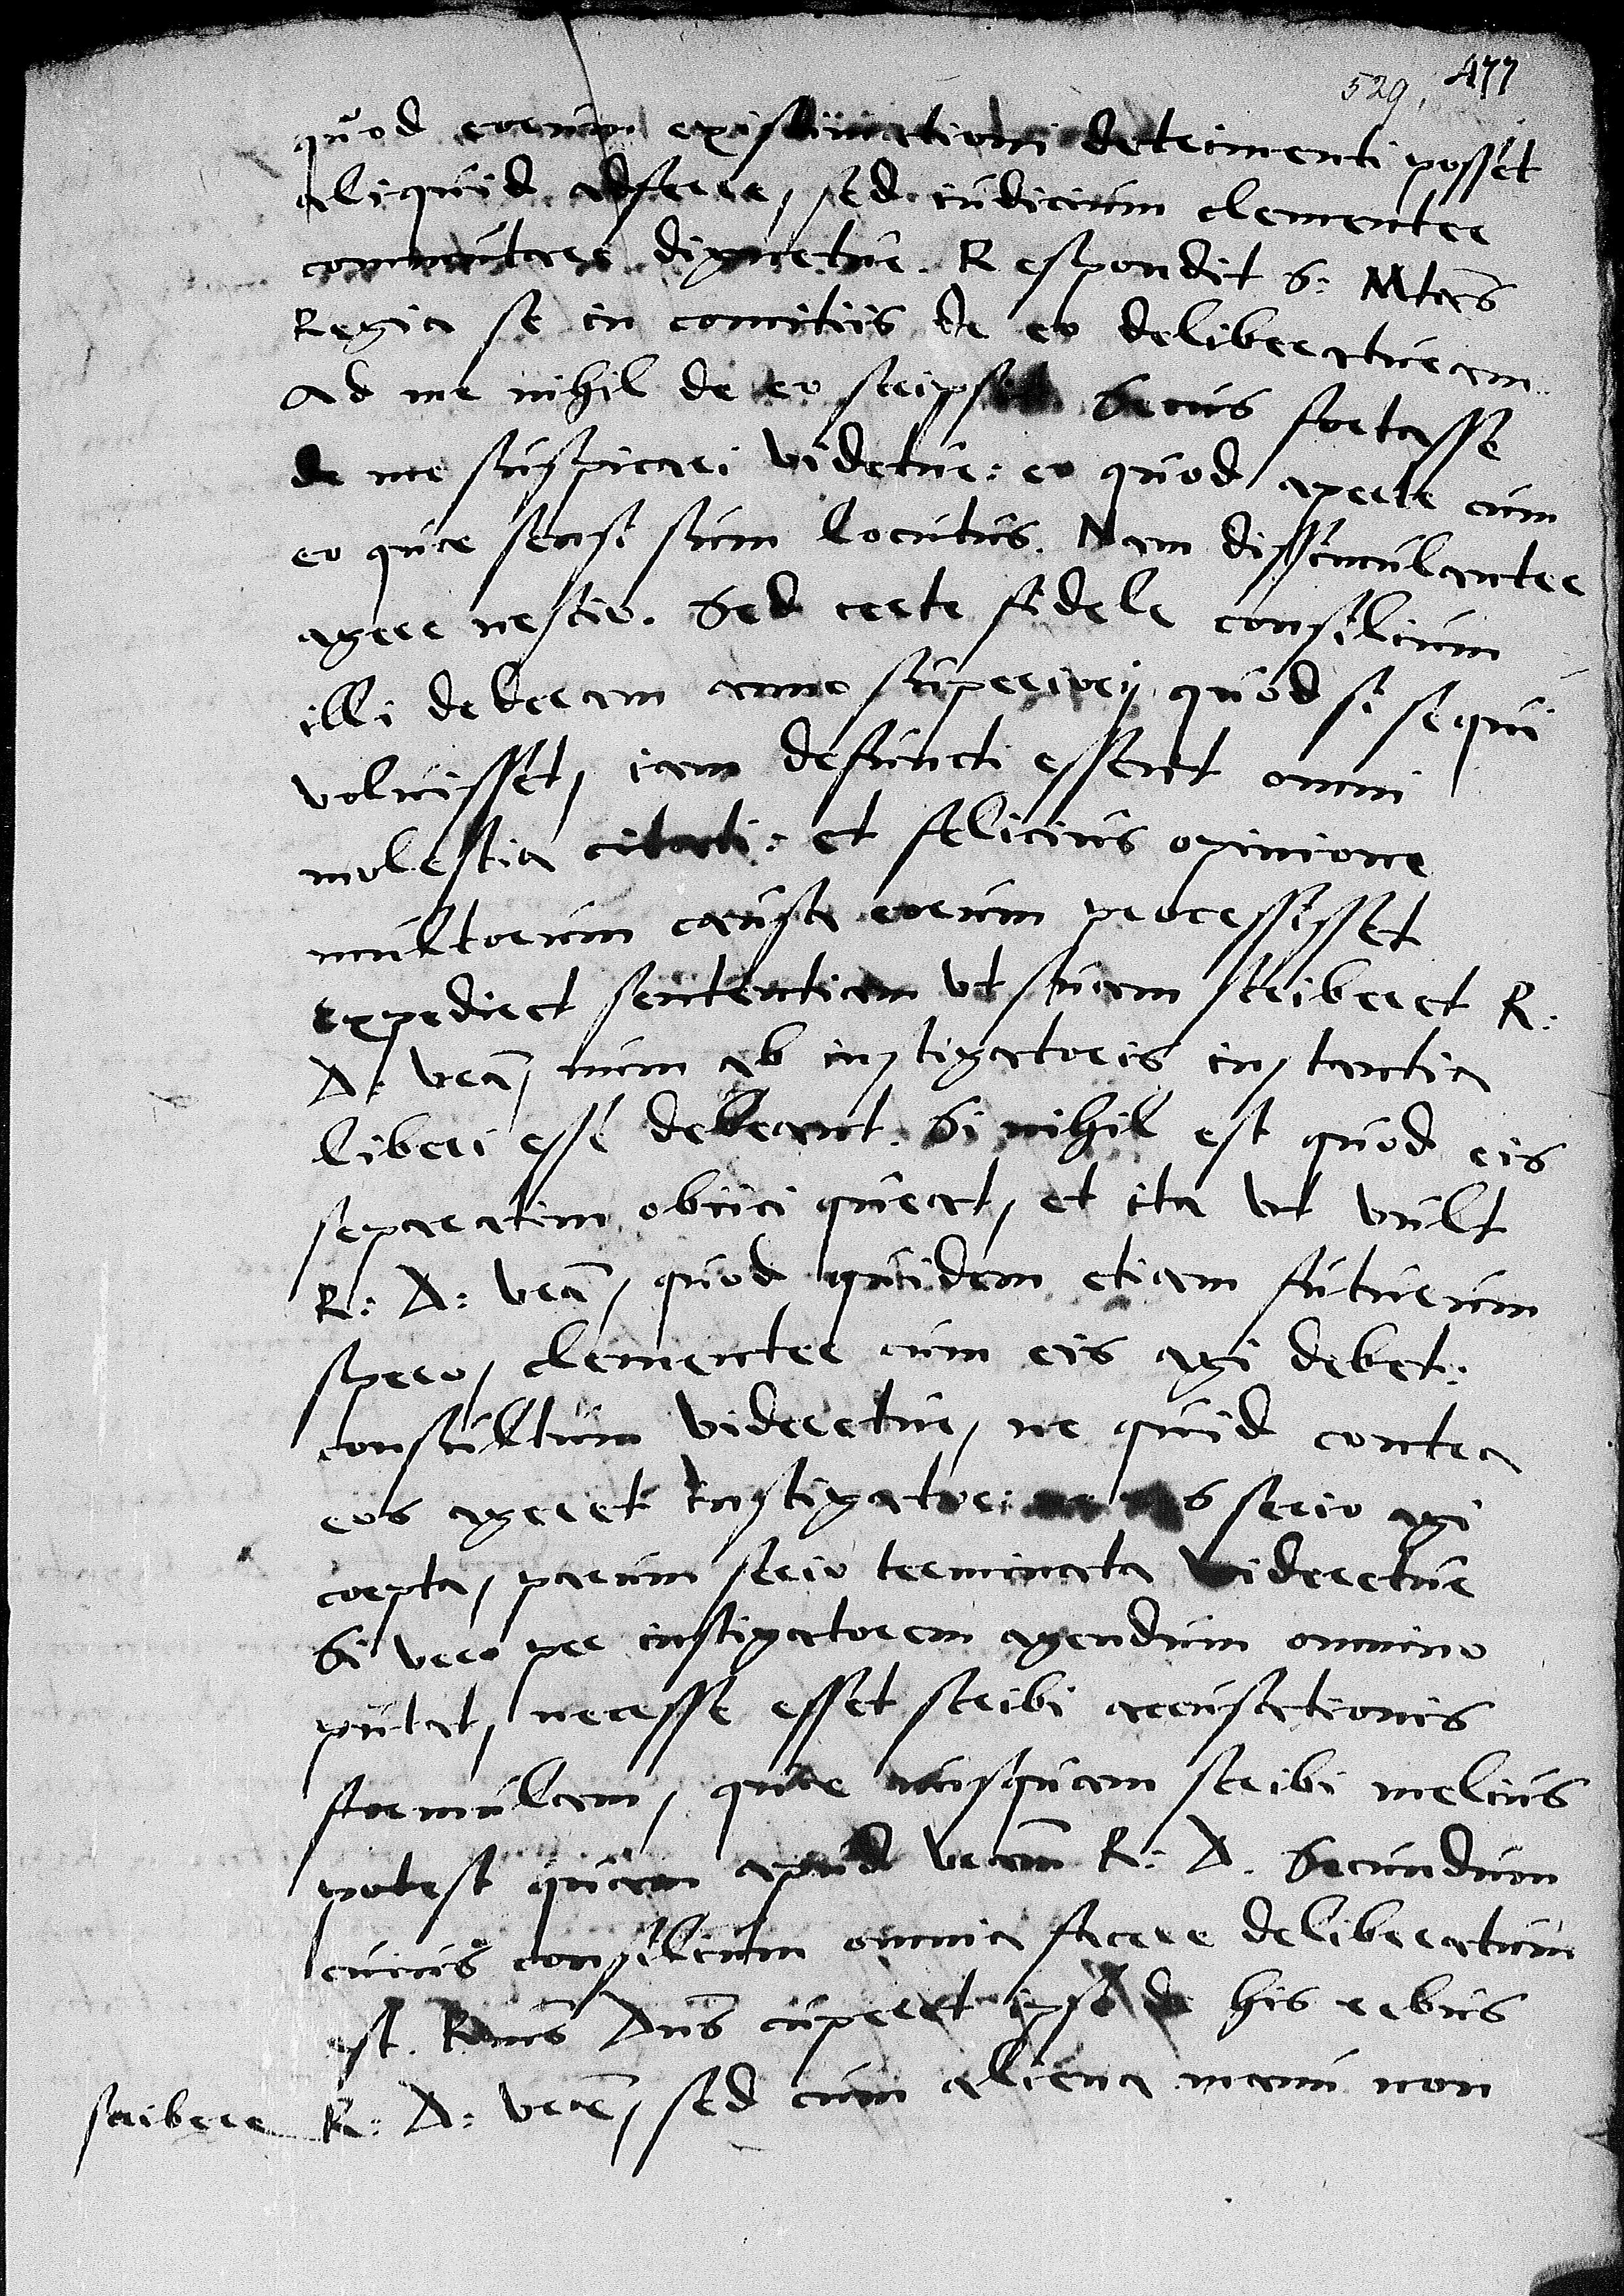 529, 477
quod eorum existimationi detrimenti posset
aliquid adferre, sed iudicium clementer
commutare dignetur. Respondit S: Mtas
Regia se in comitiis de eo deliberaturam
Ad me nihil de eo scripsit Secus fortasse
de me suspicari videtur: eo quod aperte cum
eo quae sensi sum locutus. Nam dissimulanter
agere nescio. Sed certe fidele consilium
illi dederam anno superiori quod si sequi
voluisset, iam defuncti essent omni
molestia citati: et felicius opinione
multorum causa eorum processisset
expediret sententiam ut suam scriberet R:
D: vra, num ab instigatoris instantia
liberi esse debeant. Si nihil est quod eis
separatim obiici queat, et ita ut vult
R: D: vra, quod quidem etiam futurum
spero, clementer cum eis agi debet:
consultum videretur, ne quid contra
eos ageret instigator: serio agi
coepta, parum serio terminata videretur
Si vero per instigatorem agendum omnino
putat, necesse esset scribi accusationis
formulam, quae nusquam scribi melius
potest quam apud vram R: D. Secundum
cuius consilium omnia facere deliberatum
est. Rmus Dns cuperet ipse de his rebus
scribere R: D: vrae, sed cum aliena manu non